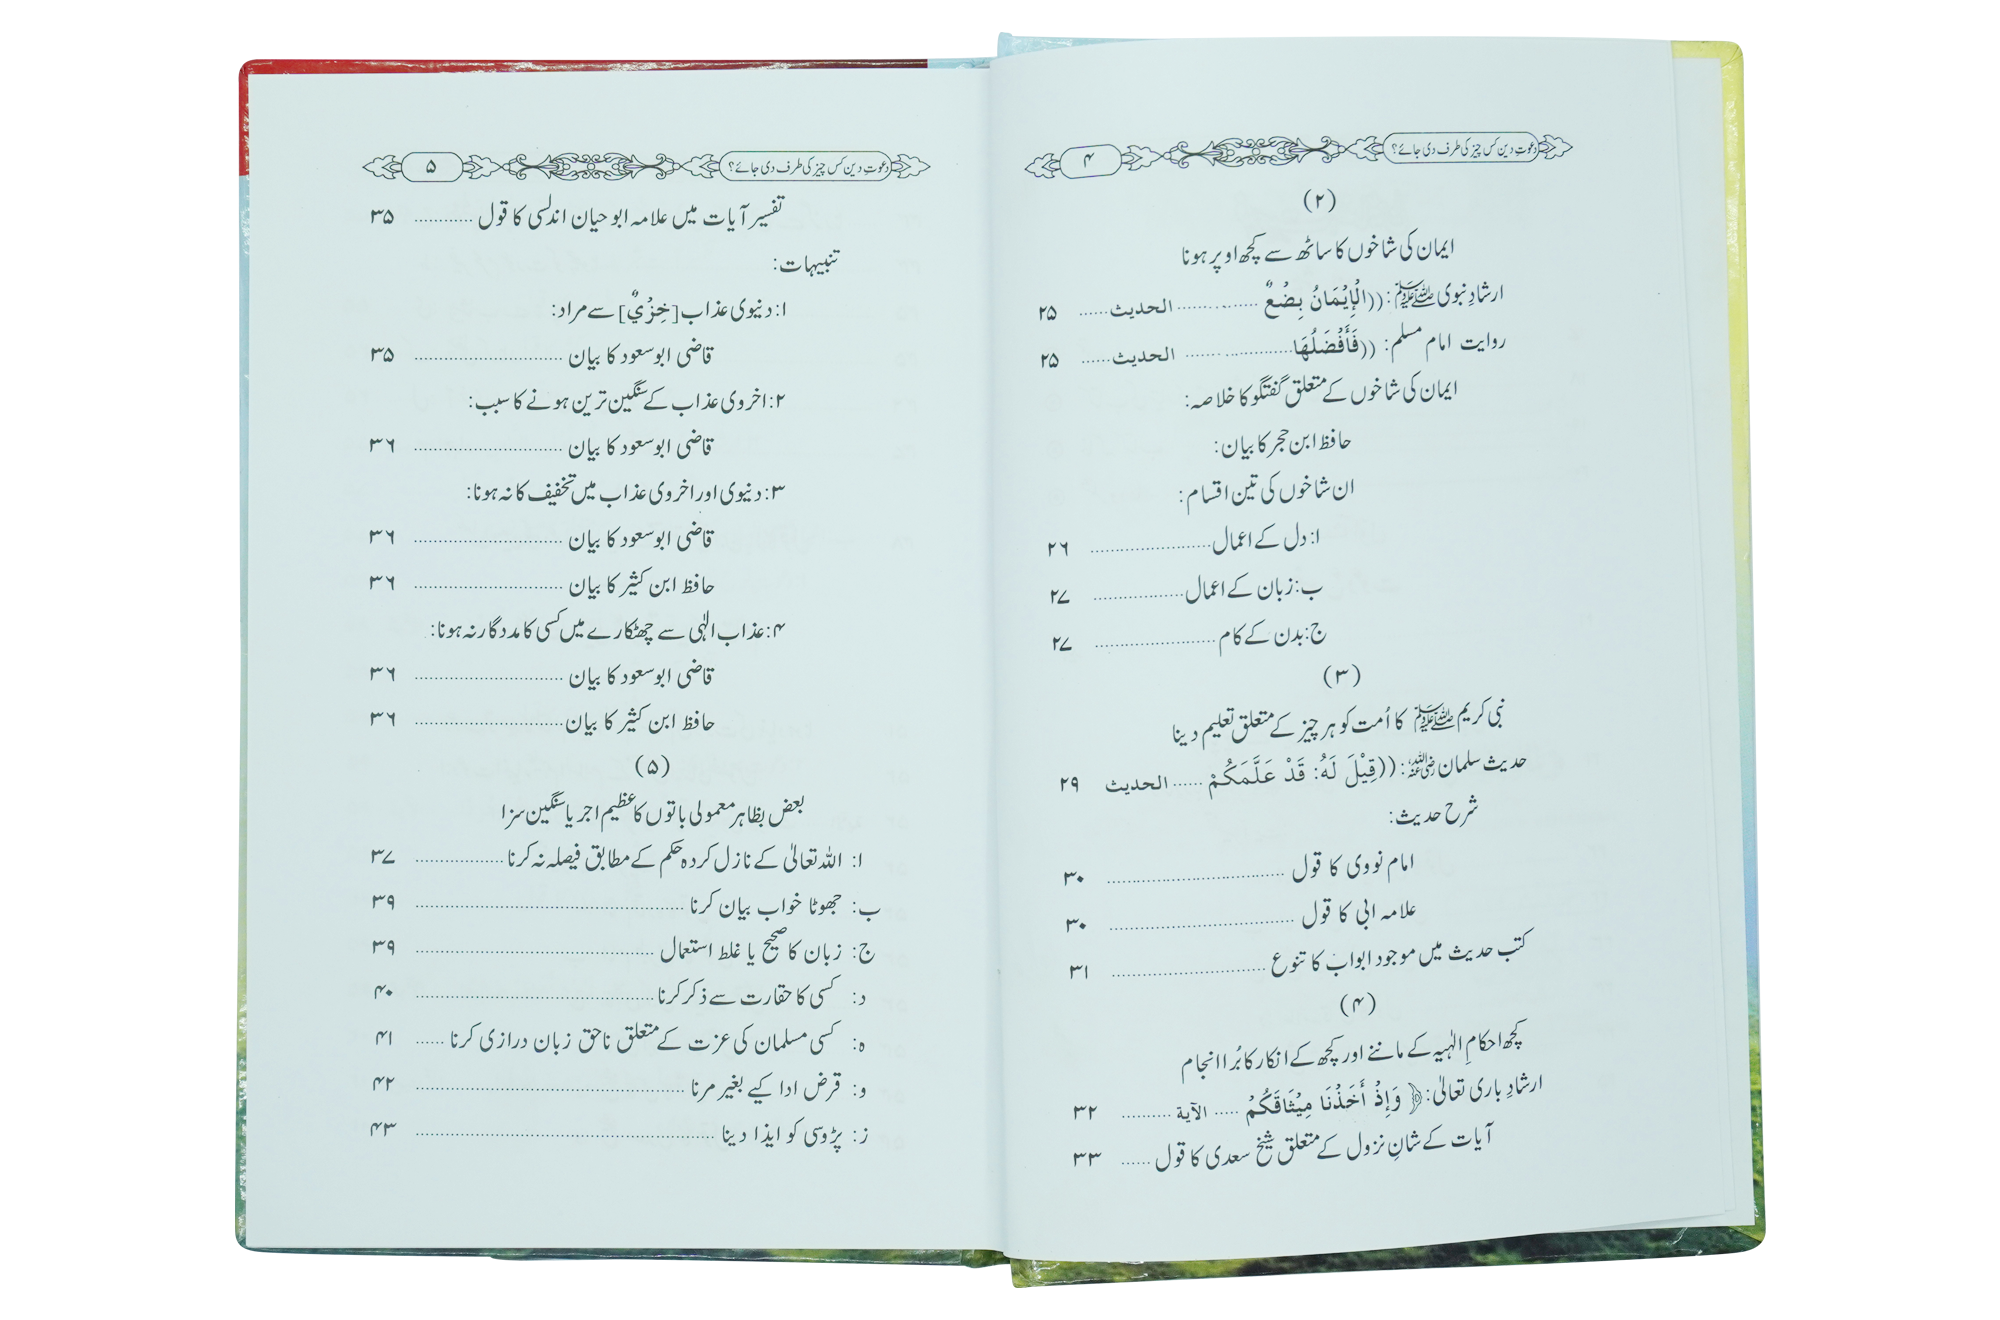 دعوتِ دین کس چیز کی طرف دی جائے؟ ۴
(۲)
ایمان کی شاخوں کا ساٹھ سے کچھ اوپر ہونا
ارشادِ نبوی ﷺ: ((الْإِيْمَانُ بِضْعٌ ............ الحدیث ...... ۲۵
روایت امام مسلم: ((فَأَفْضَلُهَا ............ الحدیث ...... ۲۵
ایمان کی شاخوں کے متعلق گفتگو کا خلاصہ:
حافظ ابن حجر کا بیان:
ان شاخوں کی تین اقسام:
ا: دل کے اعمال ............ ۲۶
ب: زبان کے اعمال ............ ۲۷
ج: بدن کے کام ............ ۲۷
(۳)
نبی کریم ﷺ کا اُمت کو ہر چیز کے متعلق تعلیم دینا
حدیث سلمان رضی اللہ عنہ: ((قِيْلَ لَهُ: قَدْ عَلَّمَكُمْ ...... الحدیث ۲۹
شرح حدیث:
امام نووی کا قول ............ ۳۰
علامہ ابی کا قول ............ ۳۰
کتب حدیث میں موجود ابواب کا تنوع ............ ۳۱
(۴)
کچھ احکامِ الٰہیہ کے ماننے اور کچھ کے انکار کا بُرا انجام
ارشادِ باری تعالیٰ: ﴿وَإِذْ أَخَذْنَا مِيْثَاقَكُمْ ..... الآية .......... ۳۲
آیات کے شانِ نزول کے متعلق شیخ سعدی کا قول ...... ۳۳
دعوتِ دین کس چیز کی طرف دی جائے؟ ۵
تفسیر آیات میں علامہ ابو حیان اندلسی کا قول ............ ۳۵
تنبیہات:
۱: دنیوی عذاب [خِزْيٌ] سے مراد:
قاضی ابو سعود کا بیان ............ ۳۵
۲: اخروی عذاب کے سنگین ترین ہونے کا سبب:
قاضی ابو سعود کا بیان ............ ۳۶
۳: دنیوی اور اخروی عذاب میں تخفیف کا نہ ہونا:
قاضی ابو سعود کا بیان ............ ۳۶
حافظ ابن کثیر کا بیان ............ ۳۶
۴: عذاب الٰہی سے چھٹکارے میں کسی کا مددگار نہ ہونا:
قاضی ابو سعود کا بیان ............ ۳۶
حافظ ابن کثیر کا بیان ............ ۳۶
(۵)
بعض بظاہر معمولی باتوں کا عظیم اجر یا سنگین سزا
ا: اللہ تعالیٰ کے نازل کردہ حکم کے مطابق فیصلہ نہ کرنا ............ ۳۷
ب: جھوٹا خواب بیان کرنا ............ ۳۹
ج: زبان کا صحیح یا غلط استعمال ............ ۳۹
د: کسی کا حقارت سے ذکر کرنا ............ ۴۰
ہ: کسی مسلمان کی عزت کے متعلق ناحق زبان درازی کرنا ...... ۴۱
و: قرض ادا کیے بغیر مرنا ............ ۴۲
ز: پڑوسی کو ایذا دینا ............ ۴۳